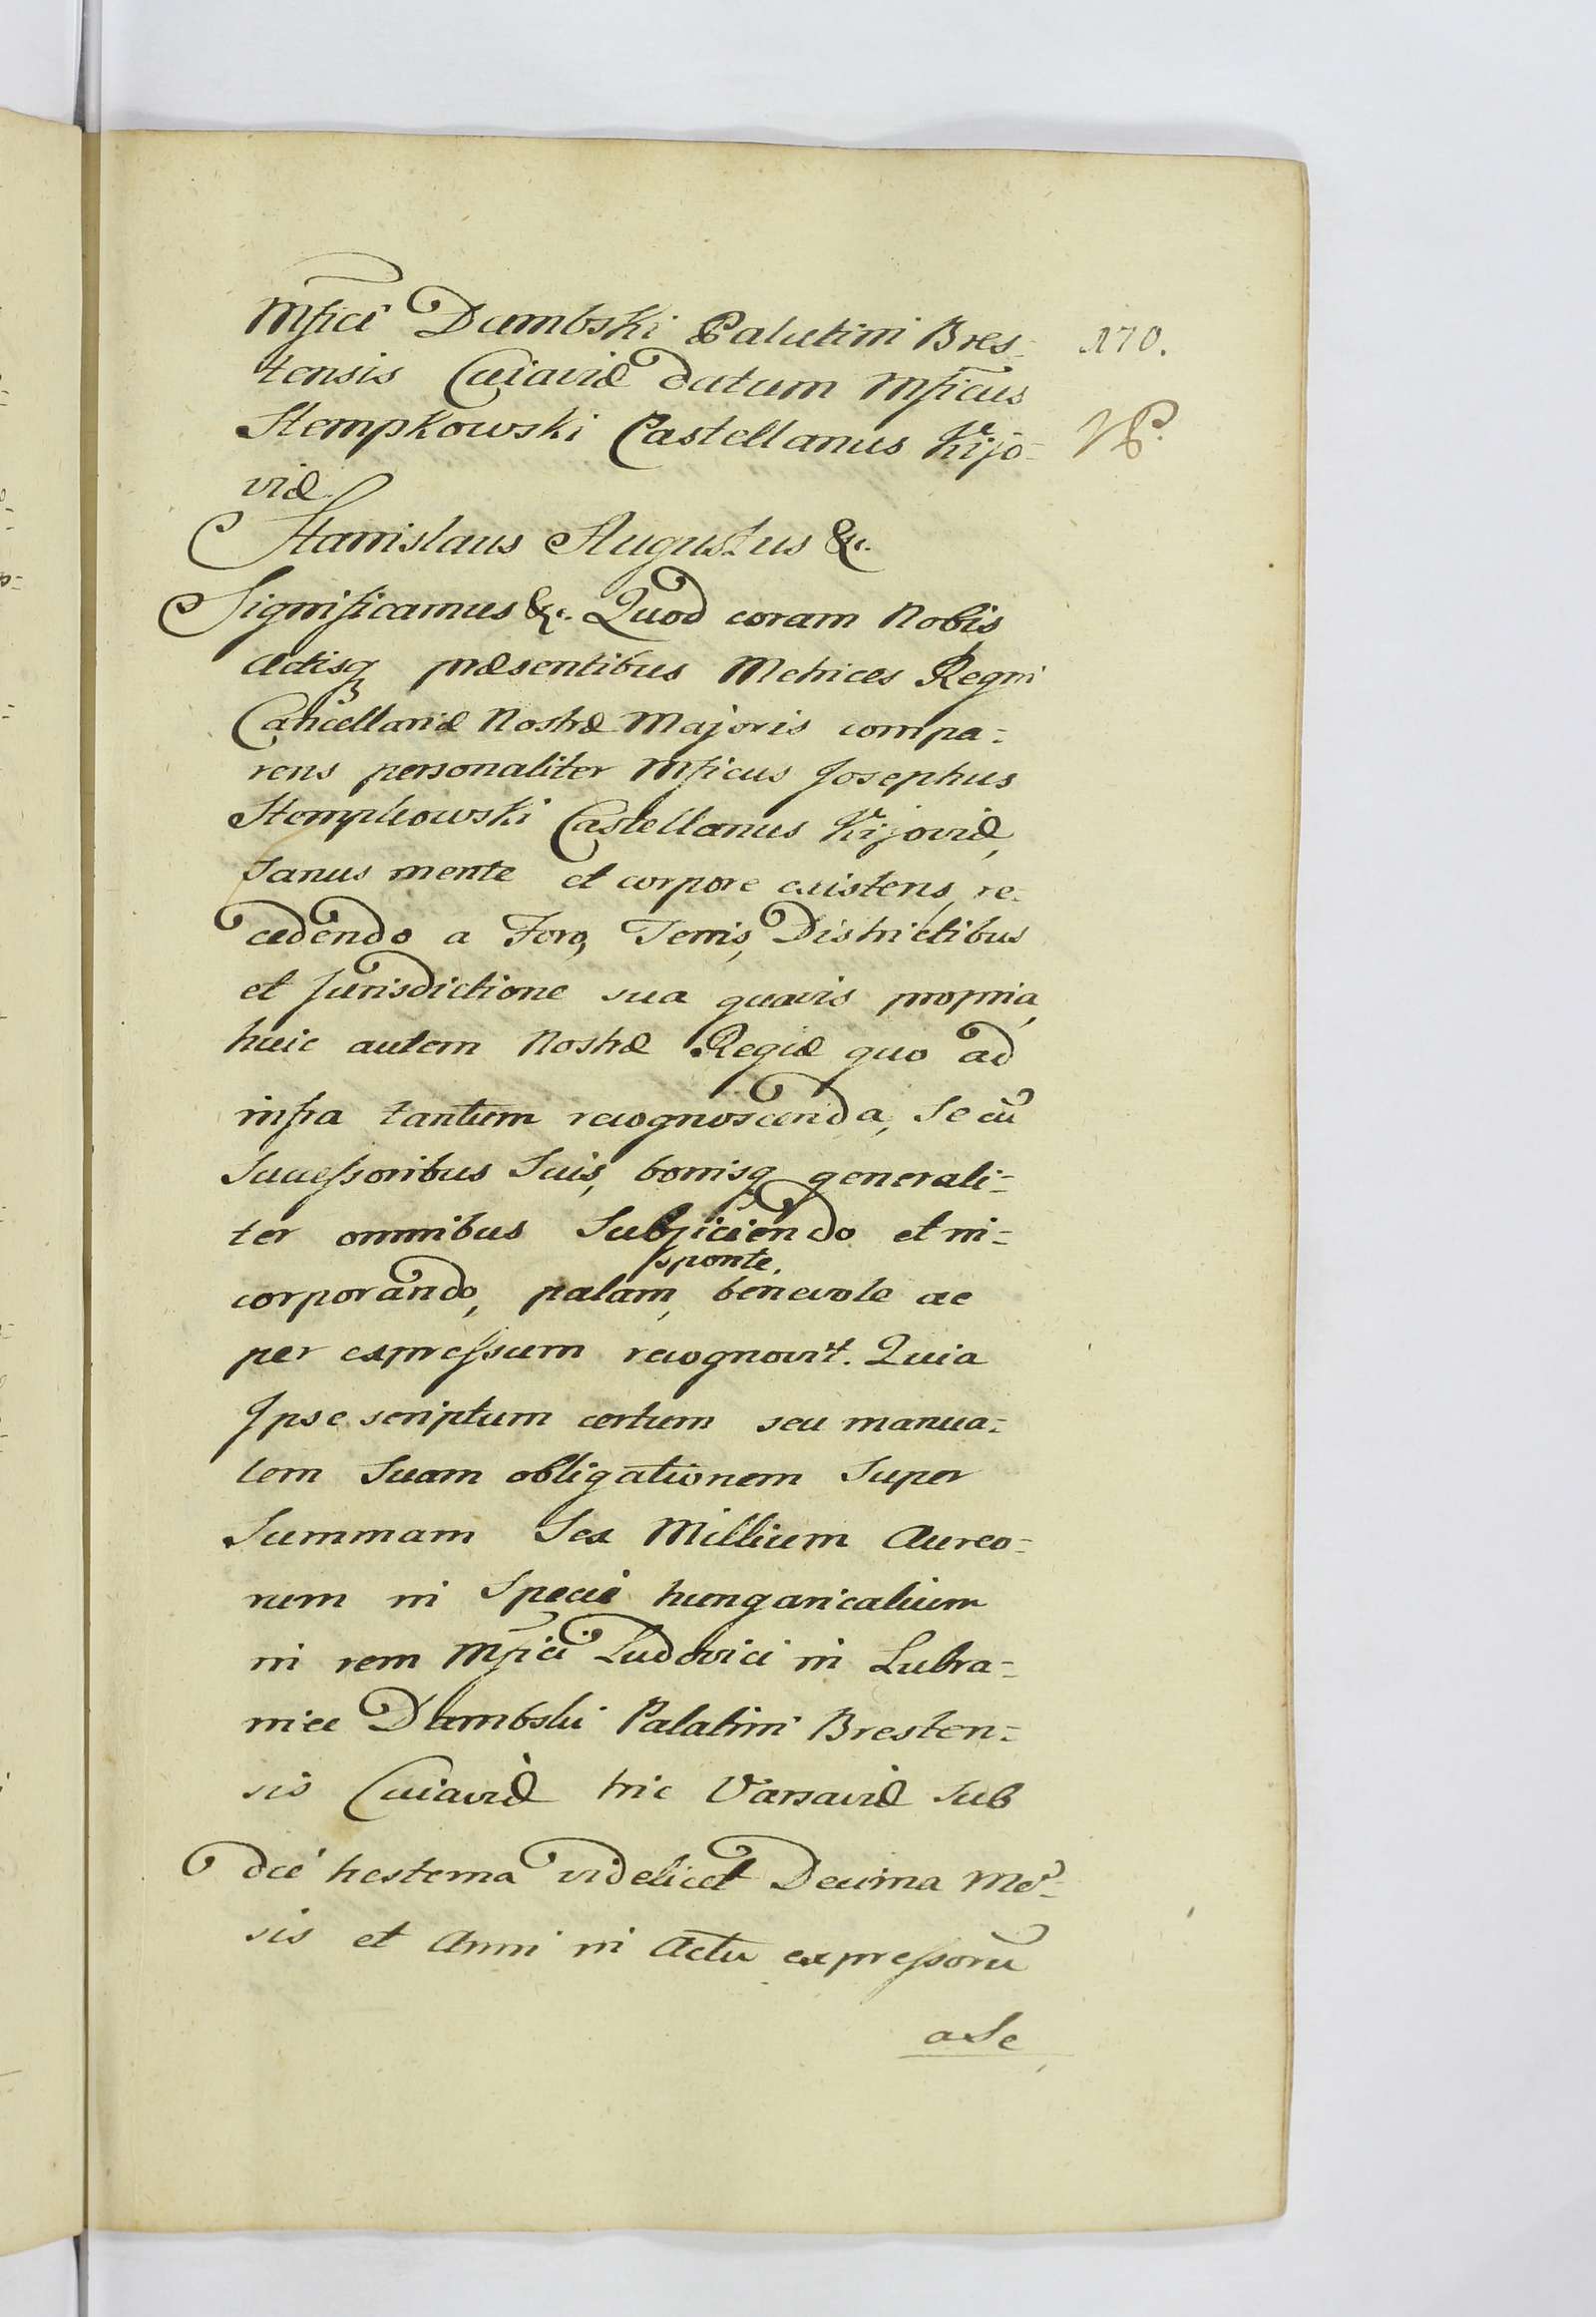 Mfici Dambski Palatini Bres=
170.
tensis Cuiaviæ datum Mficus
Stempkowski Castellanus Kijo=
viæ.
Stanislaus Augustus &c.
Significamus &c. Quod coram Nobis
actisq præsentibus Metrices Regni
Cancellariæ Nostræ Majoris compa=
rens personaliter Mficus Josephus
Stempkowski Castellanus Kijoviæ,
Sanus mente et corpore existens, re=
cedendo a Foro, Terris, Districtibus
et Jurisdictione sua quavis propria,
huic autem Nostræ Regiæ quo ad
infra tantum recognoscenda, Se cũ
Successoribus Suis, bonisq generali=
ter omnibus Subjiciendo et in=
sponte,
corporando, palam, benevole ac
per expressum recognovit. Quia
Ipse scriptum certum seu manua=
lem Suam obligationem Super
Summam Sex Millium Aureo=
rum in Specie hungaricalium
in rem Mfici Ludovici in Lubra=
niec Dambski Palatini Bresten=
sis Cuiaviæ hic Varsaviæ Sub
die hesterna videlicet Decima Mẽ=
sis et Anni in Actu expressorũ
a Se